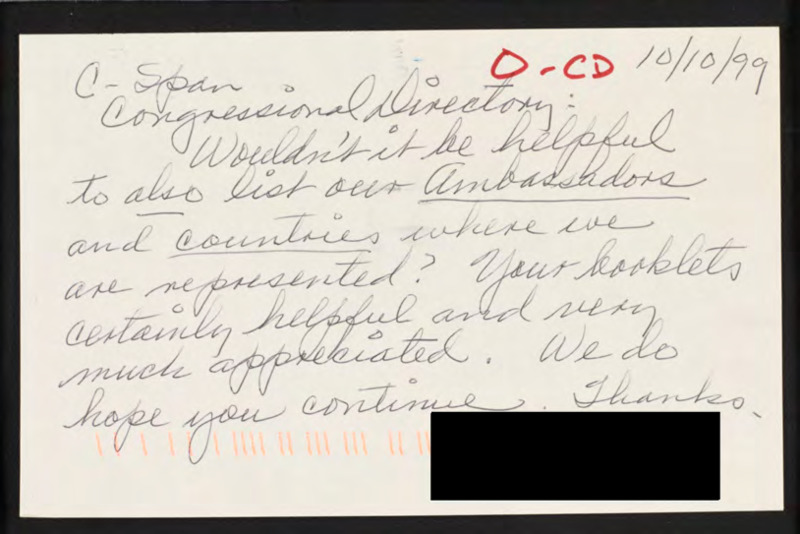 O-CD 10/10/99
C-Span
Congressional Directory:
Wouldn't it be helpful
to also list our Ambassadors
and countries where we
are represented? Your booklets
certainly helpful and very
much appreciated. We do
hope you continue. Thanks.